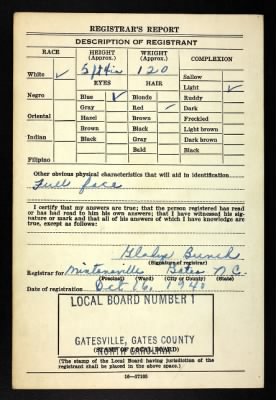 REGISTRAR'S REPORT
DESCRIPTION OF REGISTRANT
RACE HEIGHT (Approx.) WEIGHT (Approx.) COMPLEXION
5 ft 4 in 120
White ✓ EYES HAIR Sallow
Light ✓
Negro Blue ✓ Blonde Ruddy
Gray Red ✓ Dark
Oriental Hazel Brown Freckled
Brown Black Light brown
Indian Black Gray Dark brown
Bald Black
Filipino
Other obvious physical characteristics that will aid in identification
Full face
I certify that my answers are true; that the person registered has read
or has had read to him his own answers; that I have witnessed his sig-
nature or mark and that all of his answers of which I have knowledge are
true, except as follows:
Gladys Bunch
(Signature of registrar)
Registrar for Mintonsville Gates N.C.
(Precinct) (Ward) (City or County) (State)
Date of registration Oct 16, 1940
LOCAL BOARD NUMBER 1
GATESVILLE, GATES COUNTY
NORTH CAROLINA
(STAMP OF LOCAL BOARD)
(The stamp of the Local Board having jurisdiction of the
registrant shall be placed in the above space.)